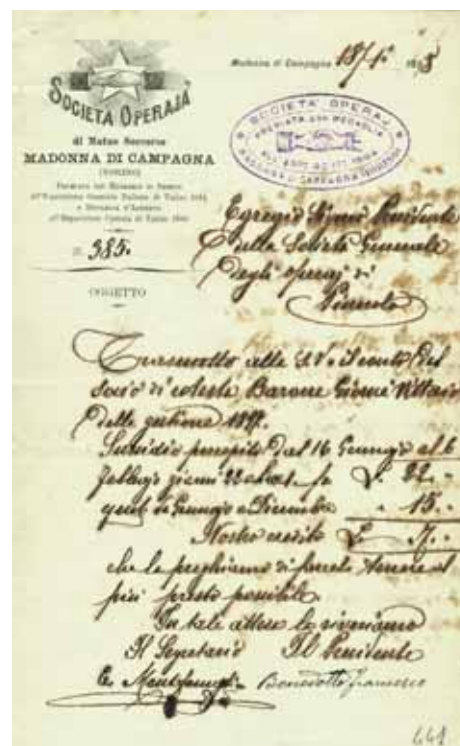 SOCIETÀ OPERAJA
di Mutuo Soccorso
MADONNA DI CAMPAGNA
(TORINO)
Premiata con Medaglia di Bronzo
all'Esposizione Generale Italiana di Torino 1884
e Medaglia d'Argento
all'Esposizione Operaia di Torino 1890
N. 385.
OGGETTO
Madonna di Campagna 18/1 1898
SOCIETA' OPERAJ
PREMIATA CON MEDAGLIA
MADONNA DI CAMPAGNA
Egregio Signor Presidente
della Società Generale
degli operaj di
Pinerolo
Trasmetto alla S.V. il conto del
socio di coteste Barone Giomè Vittorio
della gestione 1897.
Sussidio percepito dal 16 Gennajo al 6
febbrajo giorni 22 a L. 1 fa L. 22..
quote di Gennajo a Dicembre " 15..
Nostro credito L. 7..
che la preghiamo di farcele tenere al
più presto possibile.
In tale attesa la riveriamo
Il Segretario Il Presidente
Benedotto Francesco
441